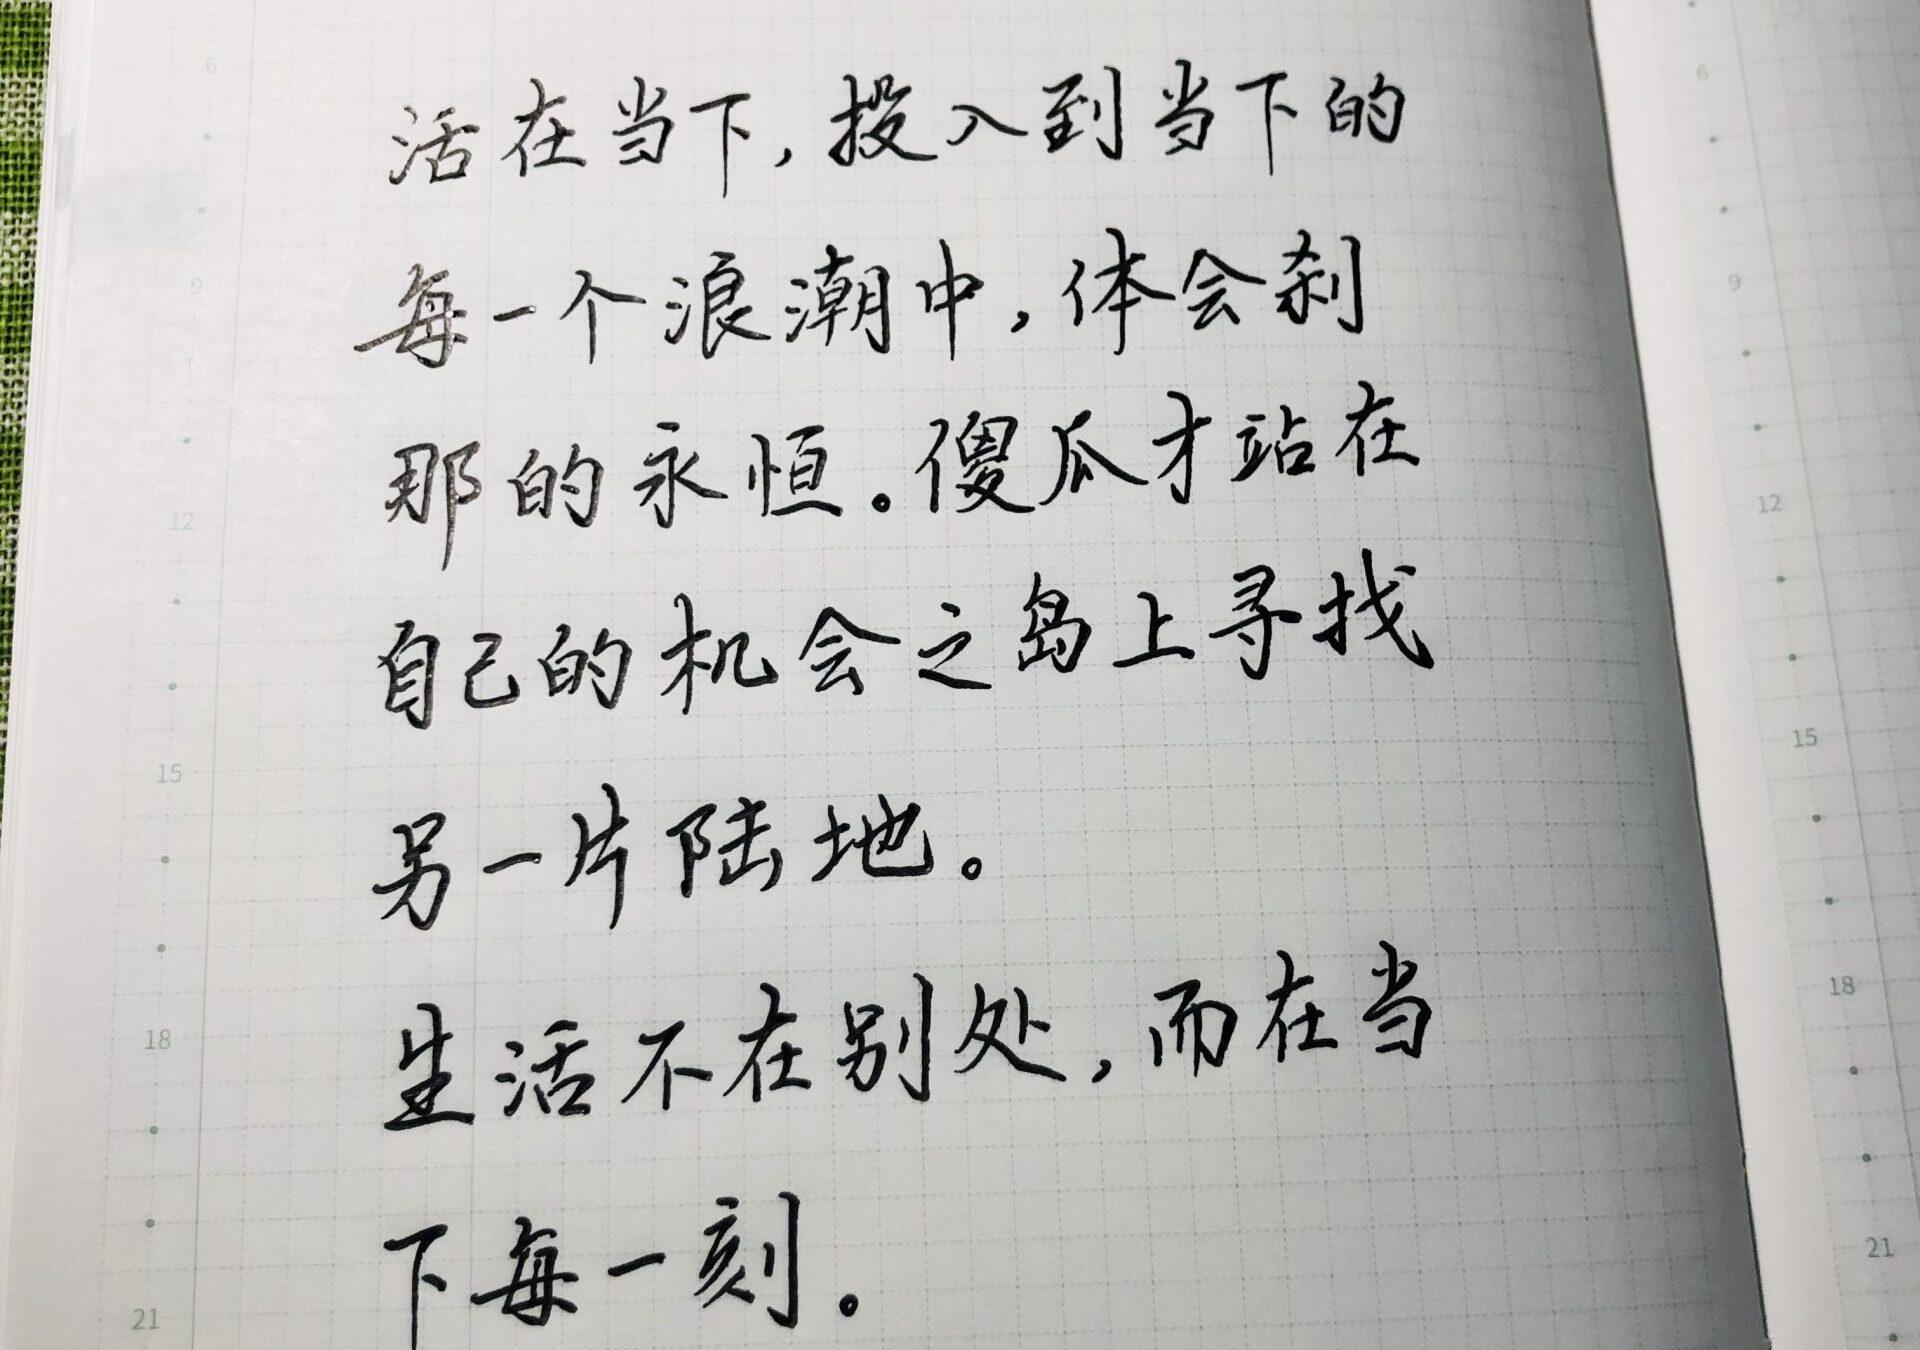 活在当下，投入到当下的
每一个浪潮中，体会刹
那的永恒。傻瓜才站在
自己的机会之岛上寻找
另一片陆地。
生活不在别处，而在当
下每一刻。
6
9
12
15
18
21
6
9
12
15
18
21